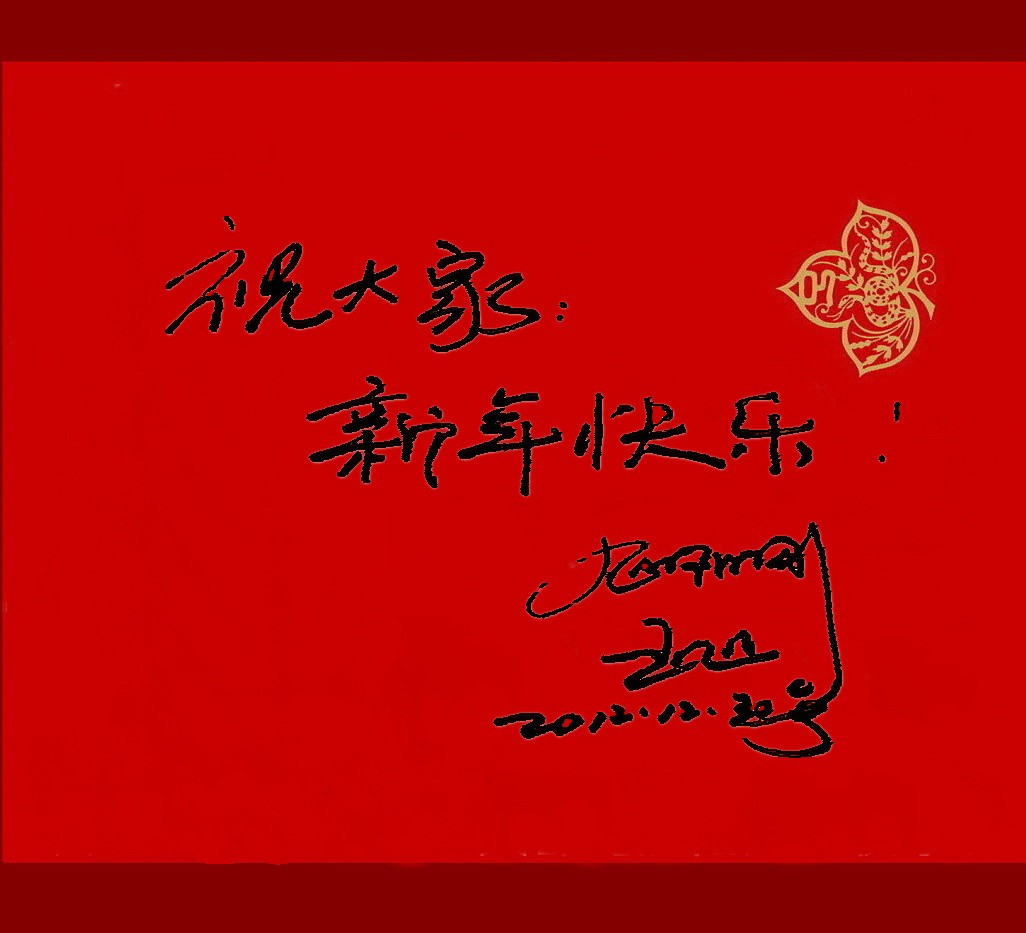 祝大家：
新年快乐！
2012.12.30号